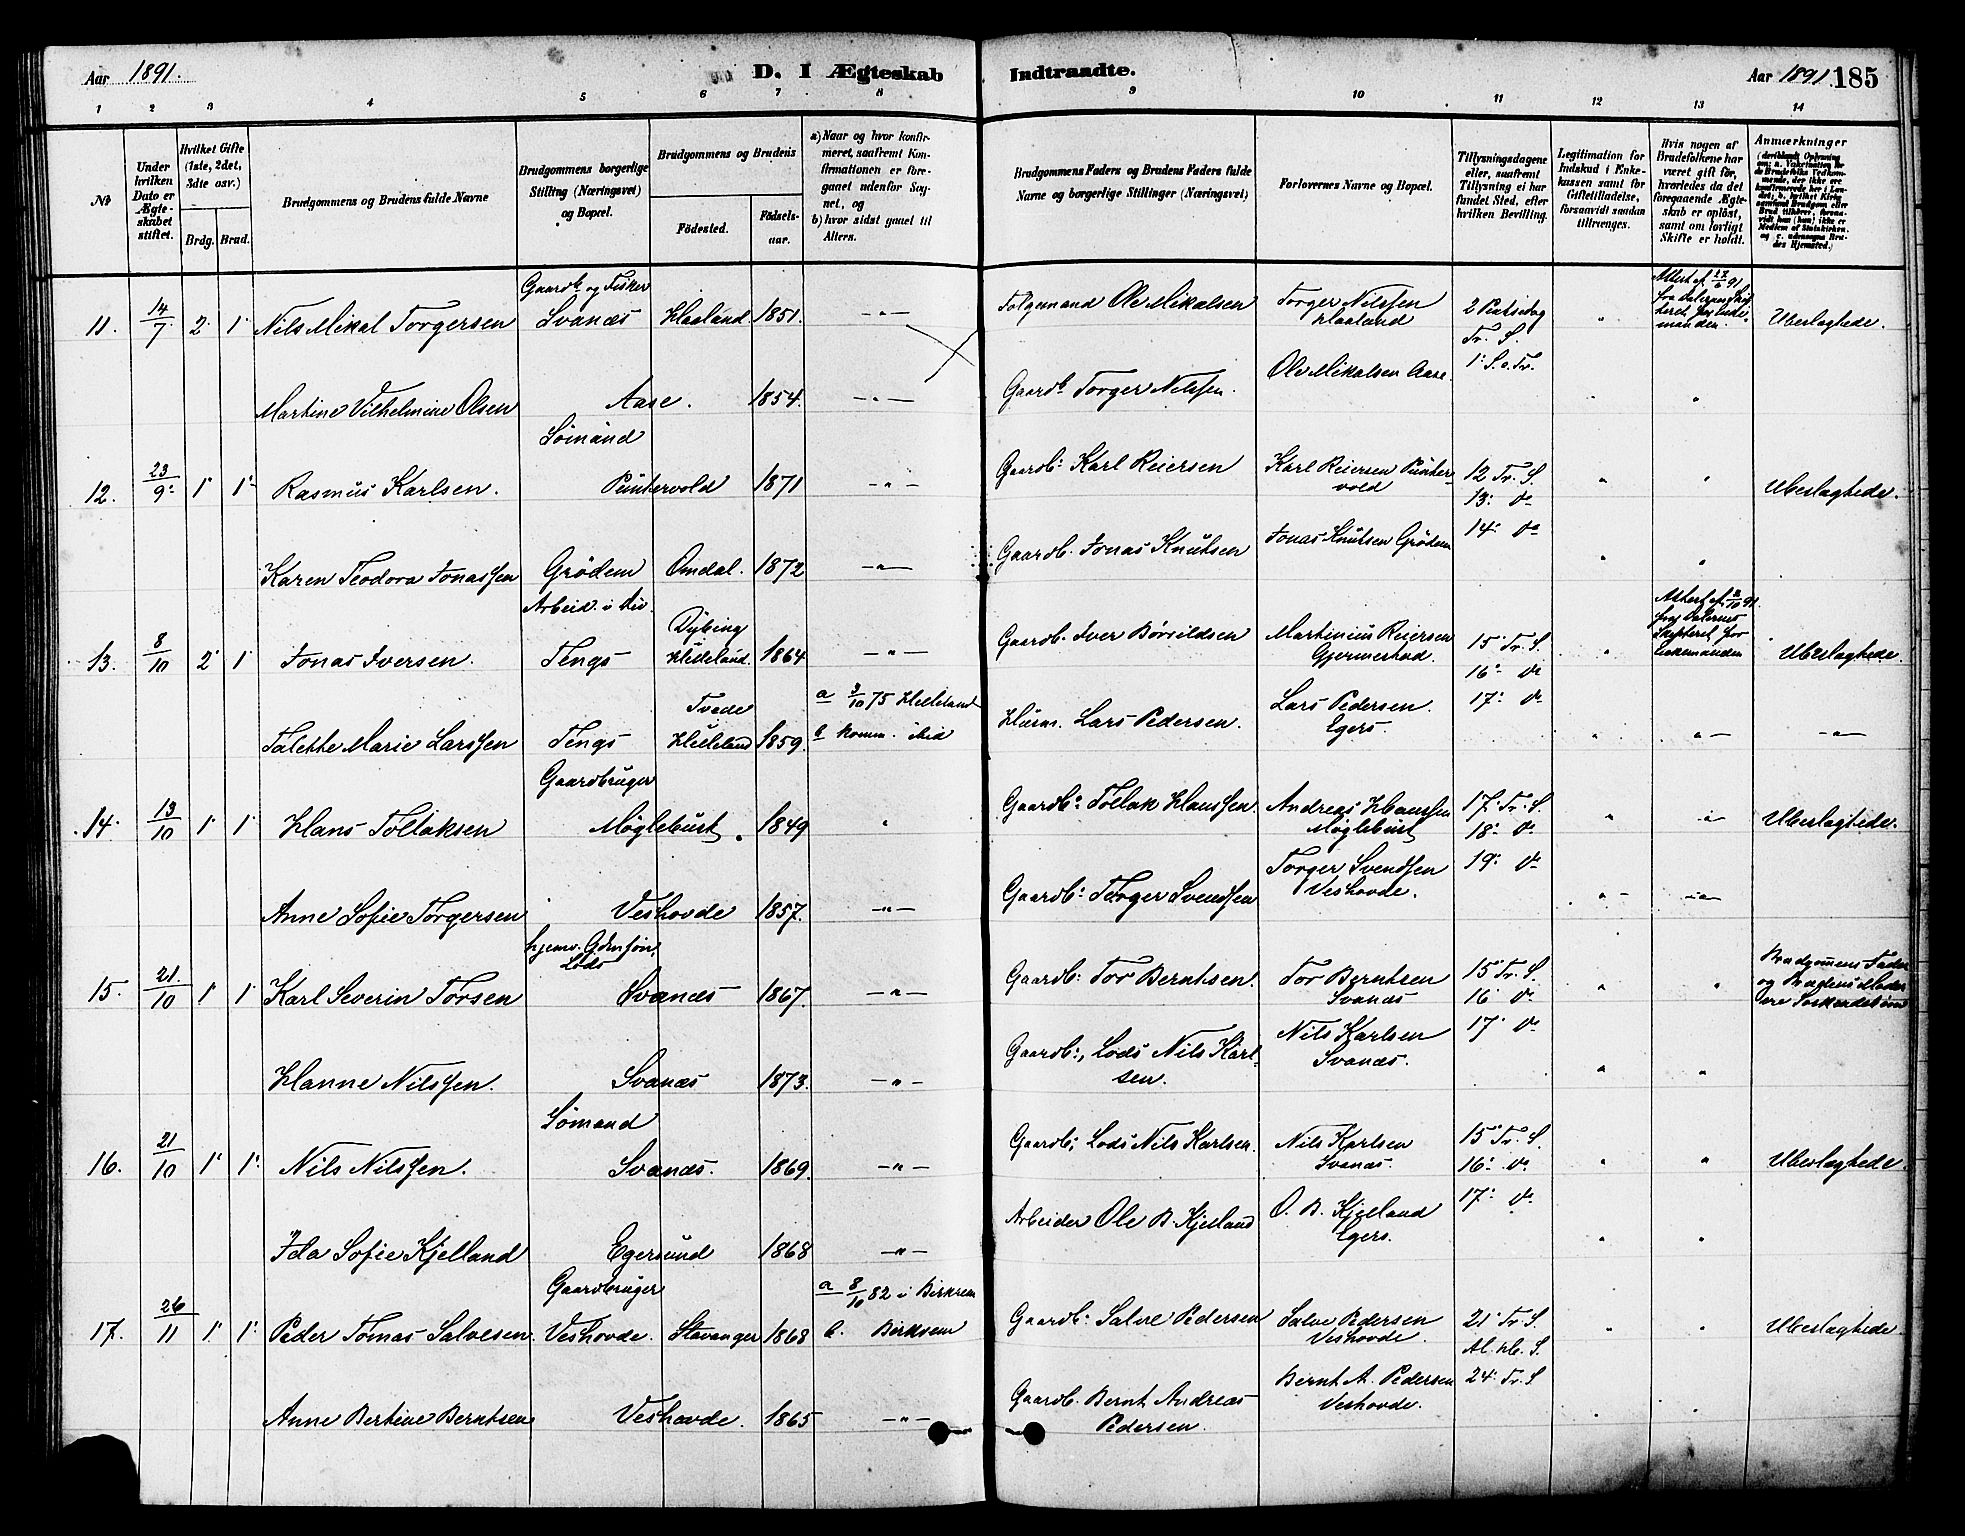 Aar 1891.
D. I Ægteskab
Indtraadte.
Aar 1891.
185
1 2 3 4 5 6 7 8 9 10 11 12 13 14
№
Under hvilken Dato er Ægteskabet stiftet.
Hvilket Gifte (1ste, 2det, 3dte osv.)
Brdg. Brud.
Brudgommens og Brudens fulde Navne
Brudgommens borgerlige Stilling (Næringsvei) og Bopæl.
Brudgommens og Brudens
Fødested.
Fødselsaar.
a) Naar og hvor konfirmeret, saafremt Konfirmationen er foregaaet udenfor Sognet, og
b) hvor sidst gaaet til Alters.
Brudgommens Faders og Brudens Faders fulde Navne og borgerlige Stillinger (Næringsvei)
Forlovernes Navne og Bopæl.
Tillysningsdagene eller, saafremt Tillysning ei har fundet Sted, efter hvilken Bevilling.
Legitimation for Indskud i Enkekassen samt for Giftetilladelse, forsaavidt saadan tiltrænges.
Hvis nogen af Brudefolkene har været gift før, hvorledes da det foregaaende Ægteskab er opløst, samt om lovligt Skifte er holdt.
Anmærkninger
11. 14/7 2 1 Nils Mikal Torgersen
Gaardb. og Fisker
Svanæs Haaland 1851. -"-
Ole Mikalsen
Torger Nilssen
Haaland
Tr. S.
1' S. e. Tr.
Attest af
Ubeslægtede.
Martine Vilhelmine Olsen Aase. 1854. -"-
Gaardb. Torger Nilssen.
Ole Mikalsen Aase.
12. 23/9 1 1 Rasmus Karlsen.
Sømand
Puntervold 1871 -"-
Gaardb: Karl Reiersen
Karl Reiersen Puntervold
12 Tr. S.
13: do
14: do
Ubeslægtede.
Karen Teodora Jonassen Grødem Omdal. 1872 -"-
Gaardb. Jonas Knutsen
Jonas Knutsen Grødem
13. 8/10 2 1 Jonas Iversen.
Arbeid.
Tengs Dybing Helleland. 1864 -"-
Gaardb. Iver
Martinius Reiersen
15 Tr. S.
16: do
17: do
Attest af
Enkemanden
Ubeslægtede.
Talette Marie Larssen Tengs Tvede Helleland 1859.
a 3/10 75 Helleland
b komm. ibid
Husm. Lars Pedersen.
Lars Pedersen.
Egers.
-"- -"-
14. 13/10 1 1 Hans Tollaksen
Gaardbruger
Møglebust. 1849 "
Gaardb: Tollak Hanssen.
Andreas Hanssen
Møglebust
17 Tr. S.
18: do
19: do
Ubeslægtede.
Anne Sofie Torgersen Veshovde 1857. -"-
Gaardb: Torger Svendsen
Torger Svendsen
Veshovde.
15. 21/10 1 1 Karl Severin Torsen
Lods
Svanæs 1867. -"-
Gaardb: Tor Berntsen.
Tor Berntsen
Svanæs
15 Tr. S.
16 do
17 do
Brudgommens Fader
og Brudens Moder
ere Søskendebørn
Hanne Nilssen. Svanæs 1873. -"-
Gaardb:, Lods Nils Karlsen.
Nils Karlsen
Svanæs.
16. 21/10 1 1 Nils Nilssen.
Sømand
Svanæs. 1869. -"-
Gaardb:, Lods Nils Karlsen.
Nils Karlsen
Svanæs.
15 Tr. S.
16: do
17: do
Ubeslægtede.
Ida Sofie Kjelland Egersund 1868 -"-
Arbeider Ole B. Kjelland
O. B. Kjelland
Egers.
17. 26/11 1 1 Peder Tomas Salvesen.
Gaardbruger
Veshovde. Stavanger 1868
a 8/10 82 i Birkrem
b. Birkrem
Gaardb: Salve Pedersen
Salve Pedersen
Veshovde.
21 Tr. S
Al. He. S.
24 Tr. S
Ubeslægtede.
Anne Bertine Berntsen Veshovde. 1865 -"-
Gaardb. Bernt Andreas
Pedersen.
Bernt A. Pedersen
Veshovde.